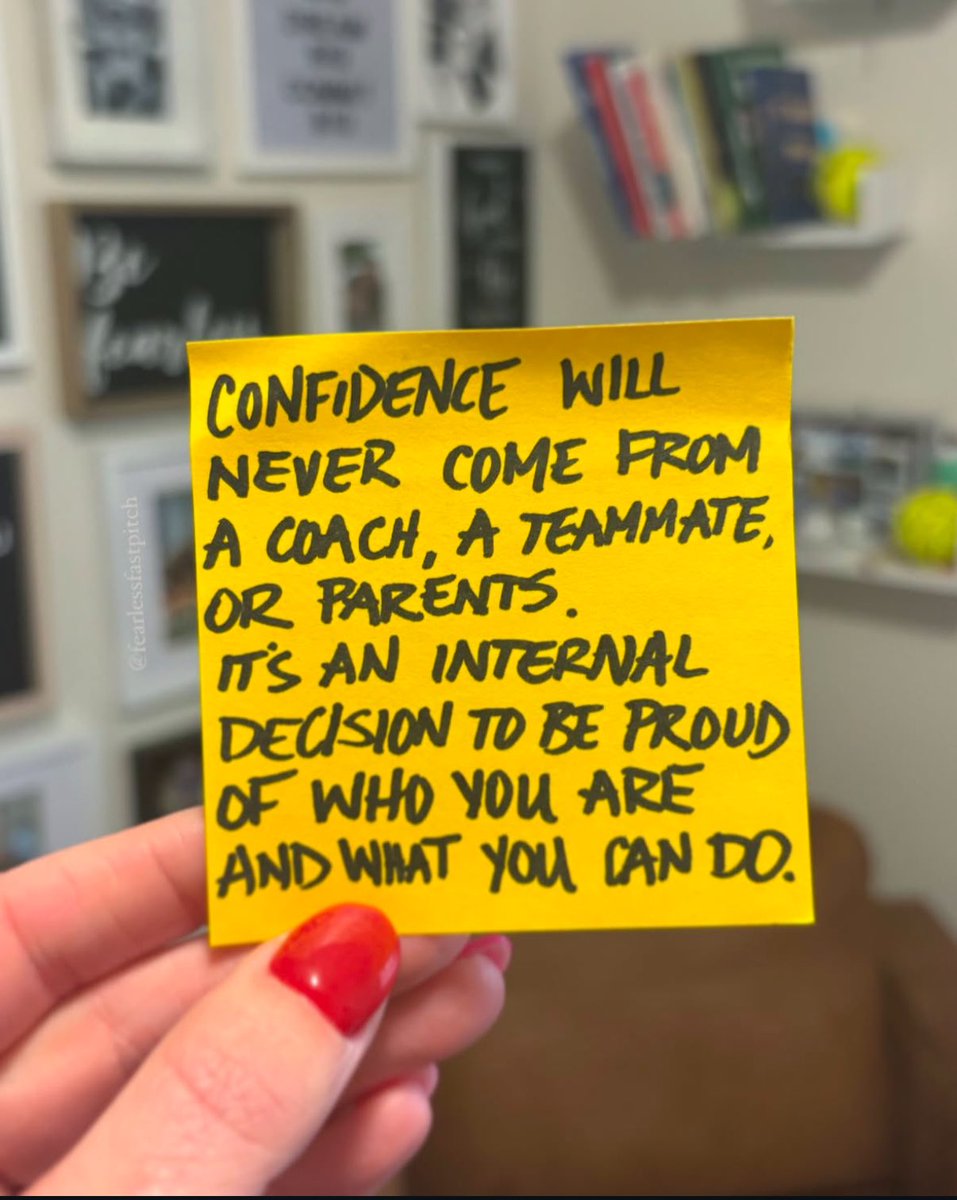 CONFIDENCE WILL
NEVER COME FROM
A COACH, A TEAMMATE,
OR PARENTS.
IT'S AN INTERNAL
DECISION TO BE PROUD
OF WHO YOU ARE
AND WHAT YOU CAN DO.
@fearlessfastpitch
Be